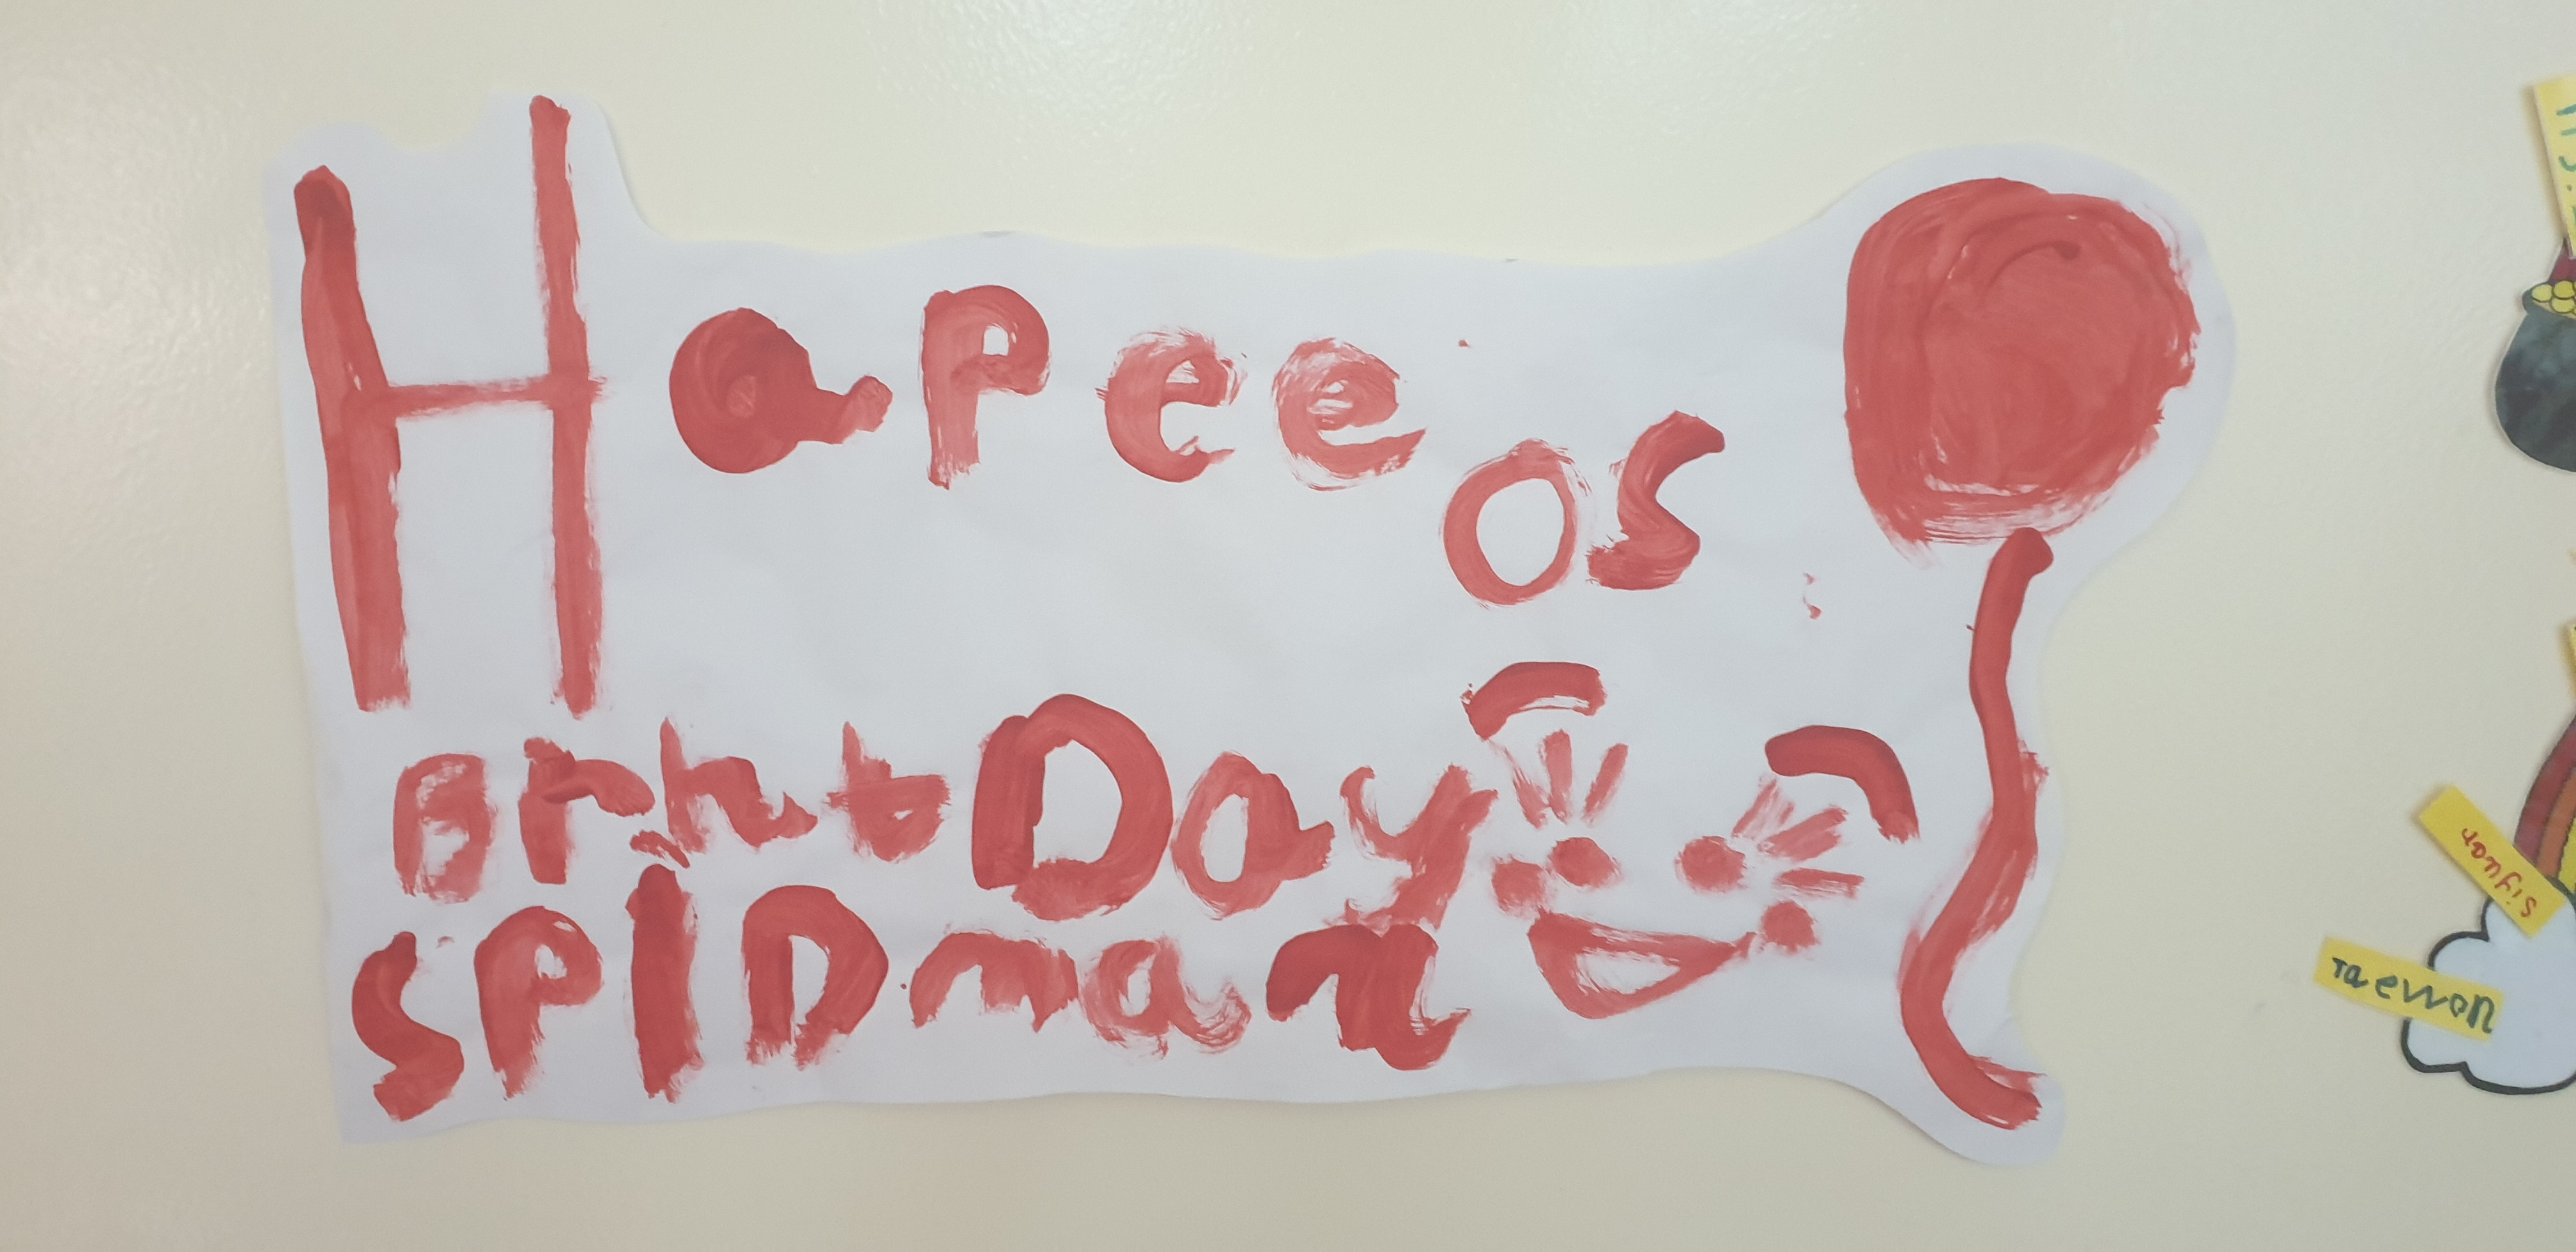 Hapee os
BrhtDay
SPiDman
siyuar
Taewon